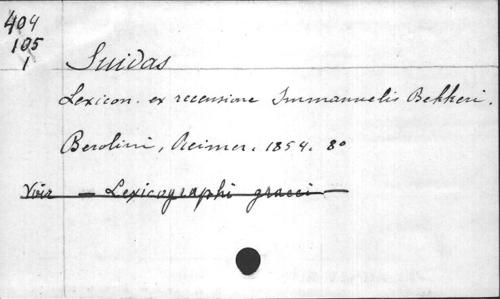 404
105
1
Suidas
Lexicon. ex recensione Immanuelis Bekkeri.
Berolini, Reimer. 1854. 8o
Voir — Lexicographi graeci —